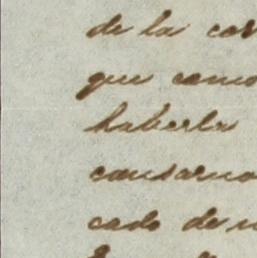 de la cor
que como
haberla
causarno
cado de u